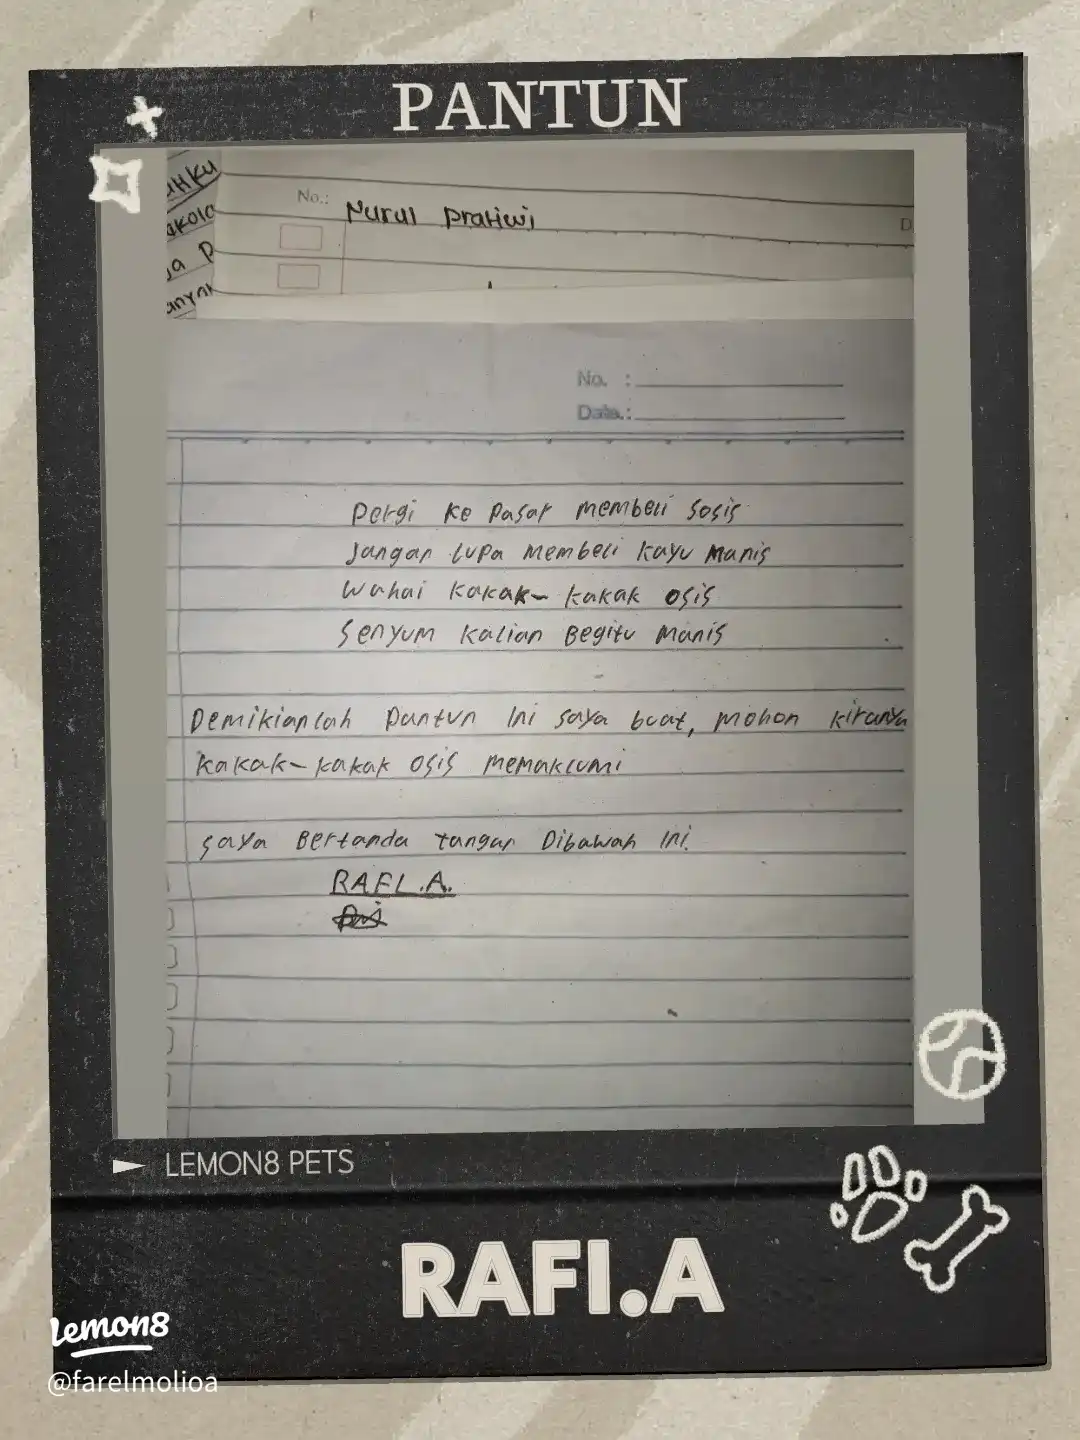 PANTUN
No.: Nurul Pratiwi
No. :
Date.:
Pergi ke Pasar membeli Sosis
Jangan lupa membeli kayu Manis
Wahai Kakak-kakak osis
Senyum Kalian Begitu Manis
Demikianlah Pantun Ini saya buat, mohon kiranya
Kakak-kakak Osis memaklumi
saya Bertanda tangan Dibawah Ini.
RAFI.A.
LEMON8 PETS
RAFI.A
Lemon8
@farelmolioa